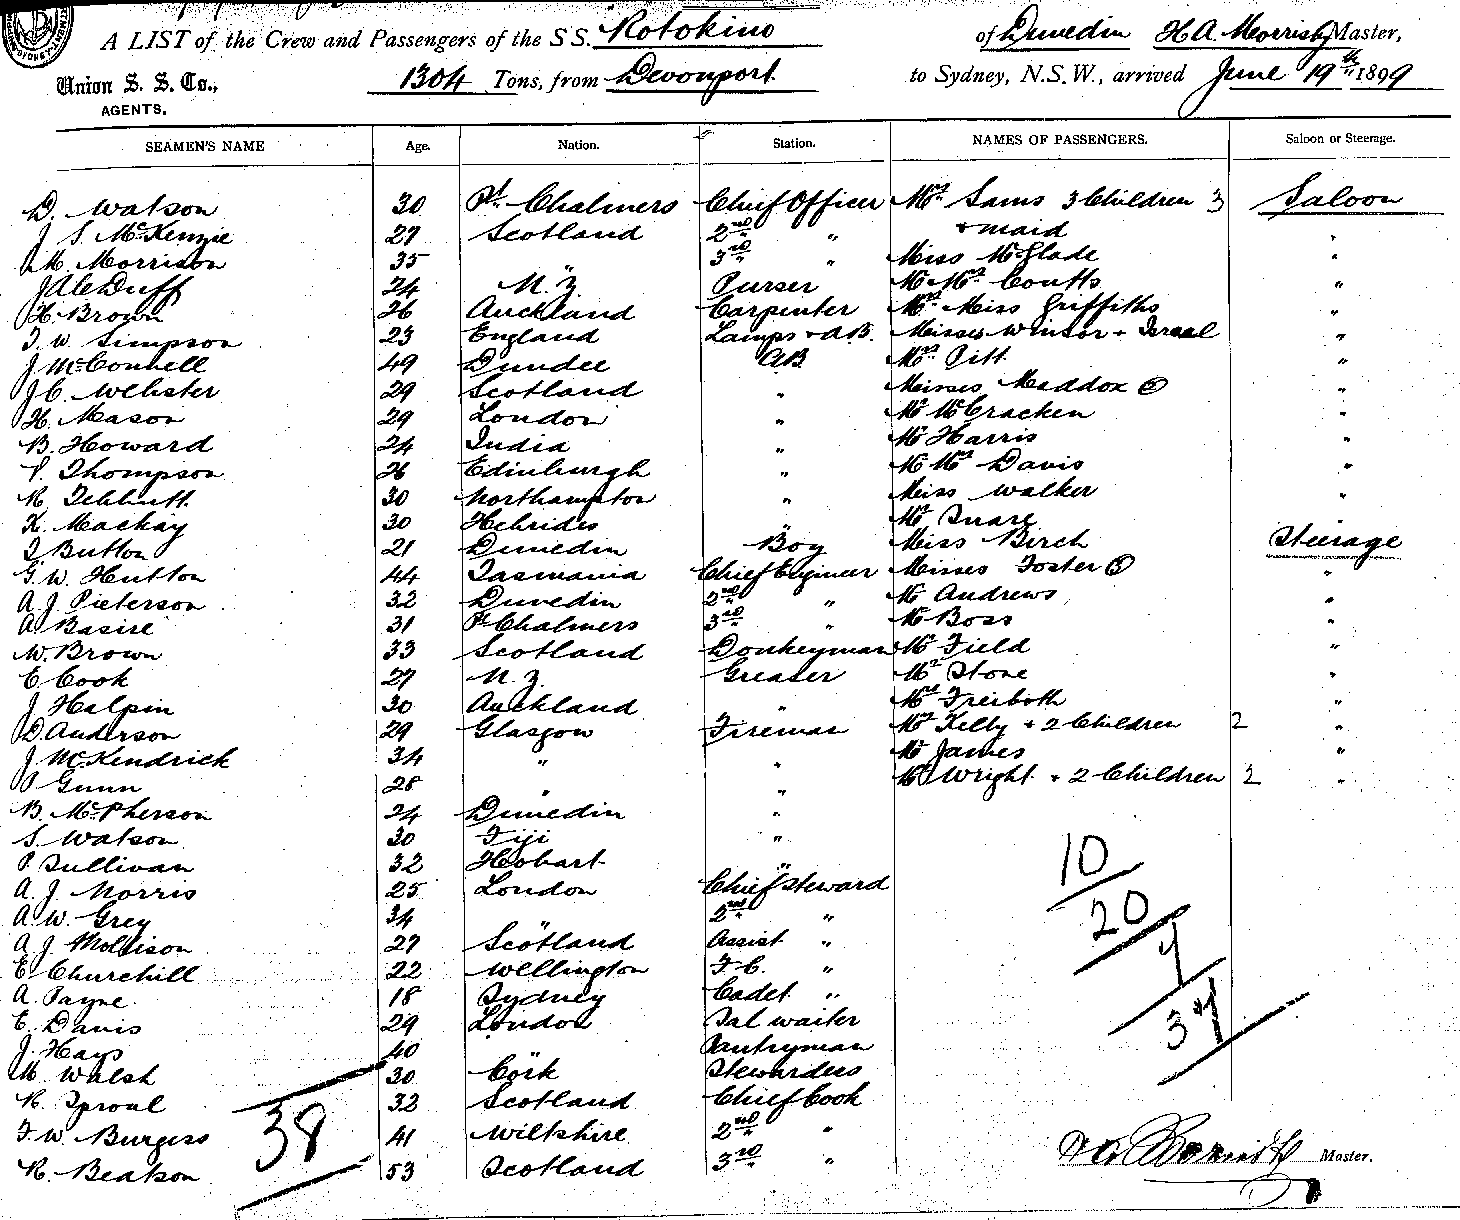 A LIST of the Crew and Passengers of the S S. Rotokino of Dunedin H A. Morrisby Master,
Union S. S. Co., 1304 Tons, from Devonport to Sydney, N.S.W., arrived June 19th 1899
AGENTS.
SEAMEN'S NAME Age. Nation. Station. NAMES OF PASSENGERS. Saloon or Steerage.
D. Watson 30 Pt. Chalmers Chief Officer Mrs. Sams 3 Children 3 Saloon
J. S. McKenzie 27 Scotland 2nd " + maid "
M. Morrison 35 " 3rd " Miss McGlade "
J A Duff 24 N. Z. Purser Mr Mrs. Coutts "
H. Brown 26 Auckland Carpenter Mrs. Miss Griffiths "
T. W. Simpson 23 England Lamps + A.B. Misses Winsor + Israel "
J. McConnell 49 Dundee AB Mrs. Pitt "
J C. Webster 29 Scotland " Misses Maddox "
H. Mason 29 London " Mr McCracken "
B. Howard 24 India " Mr Harris "
P. Thompson 26 Edinburgh " Mr Mrs Davis "
R. Tebbutt 30 Northampton " Miss Walker "
K. Mackay 30 Hebrides " Mr Snare
T Button 21 Dunedin Boy Miss Birch Steerage
G. W. Hutton 44 Tasmania Chief Engineer Misses Foster "
A. J. Pieterson 32 Dunedin 2nd " Mr Andrews "
A. Basire 31 Pt Chalmers 3rd " Mr Boss "
W. Brown 33 Scotland Donkeyman Mr Field "
E Cook 27 N. Z. Greaser Mr Stone "
J. Halpin 30 Auckland " Mr Freiboth "
D. Anderson 29 Glasgow Fireman Mrs Kelly + 2 Children 2 "
J. McKendrick 34 " " Mr James "
P Gunn 28 " " Mrs Wright + 2 Children 2 "
B. McPherson 24 Dunedin "
S. Watson 30 Fiji "
P. Sullivan 32 Hobart "
A. J. Morris 25 London Chief Steward
A. W. Grey 34 " 2nd "
A. J. Mollison 27 Scotland Assist "
E. Churchill 22 Wellington F. C. "
A. Payne 18 Sydney Cadet "
E. Davis 29 London Sal waiter
J. Hays 40 " Pantryman
M. Walsh 30 Cork Stewardess
R. Sproul 32 Scotland Chief Cook
F. W. Burgess 41 Wiltshire 2nd "
R. Beatson 53 Scotland 3rd "
10
20
7
37
38
Master.